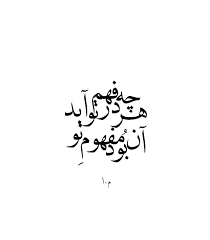 هر چه در فهم تو آید
آن بُود مفهومِ تو
م.ا